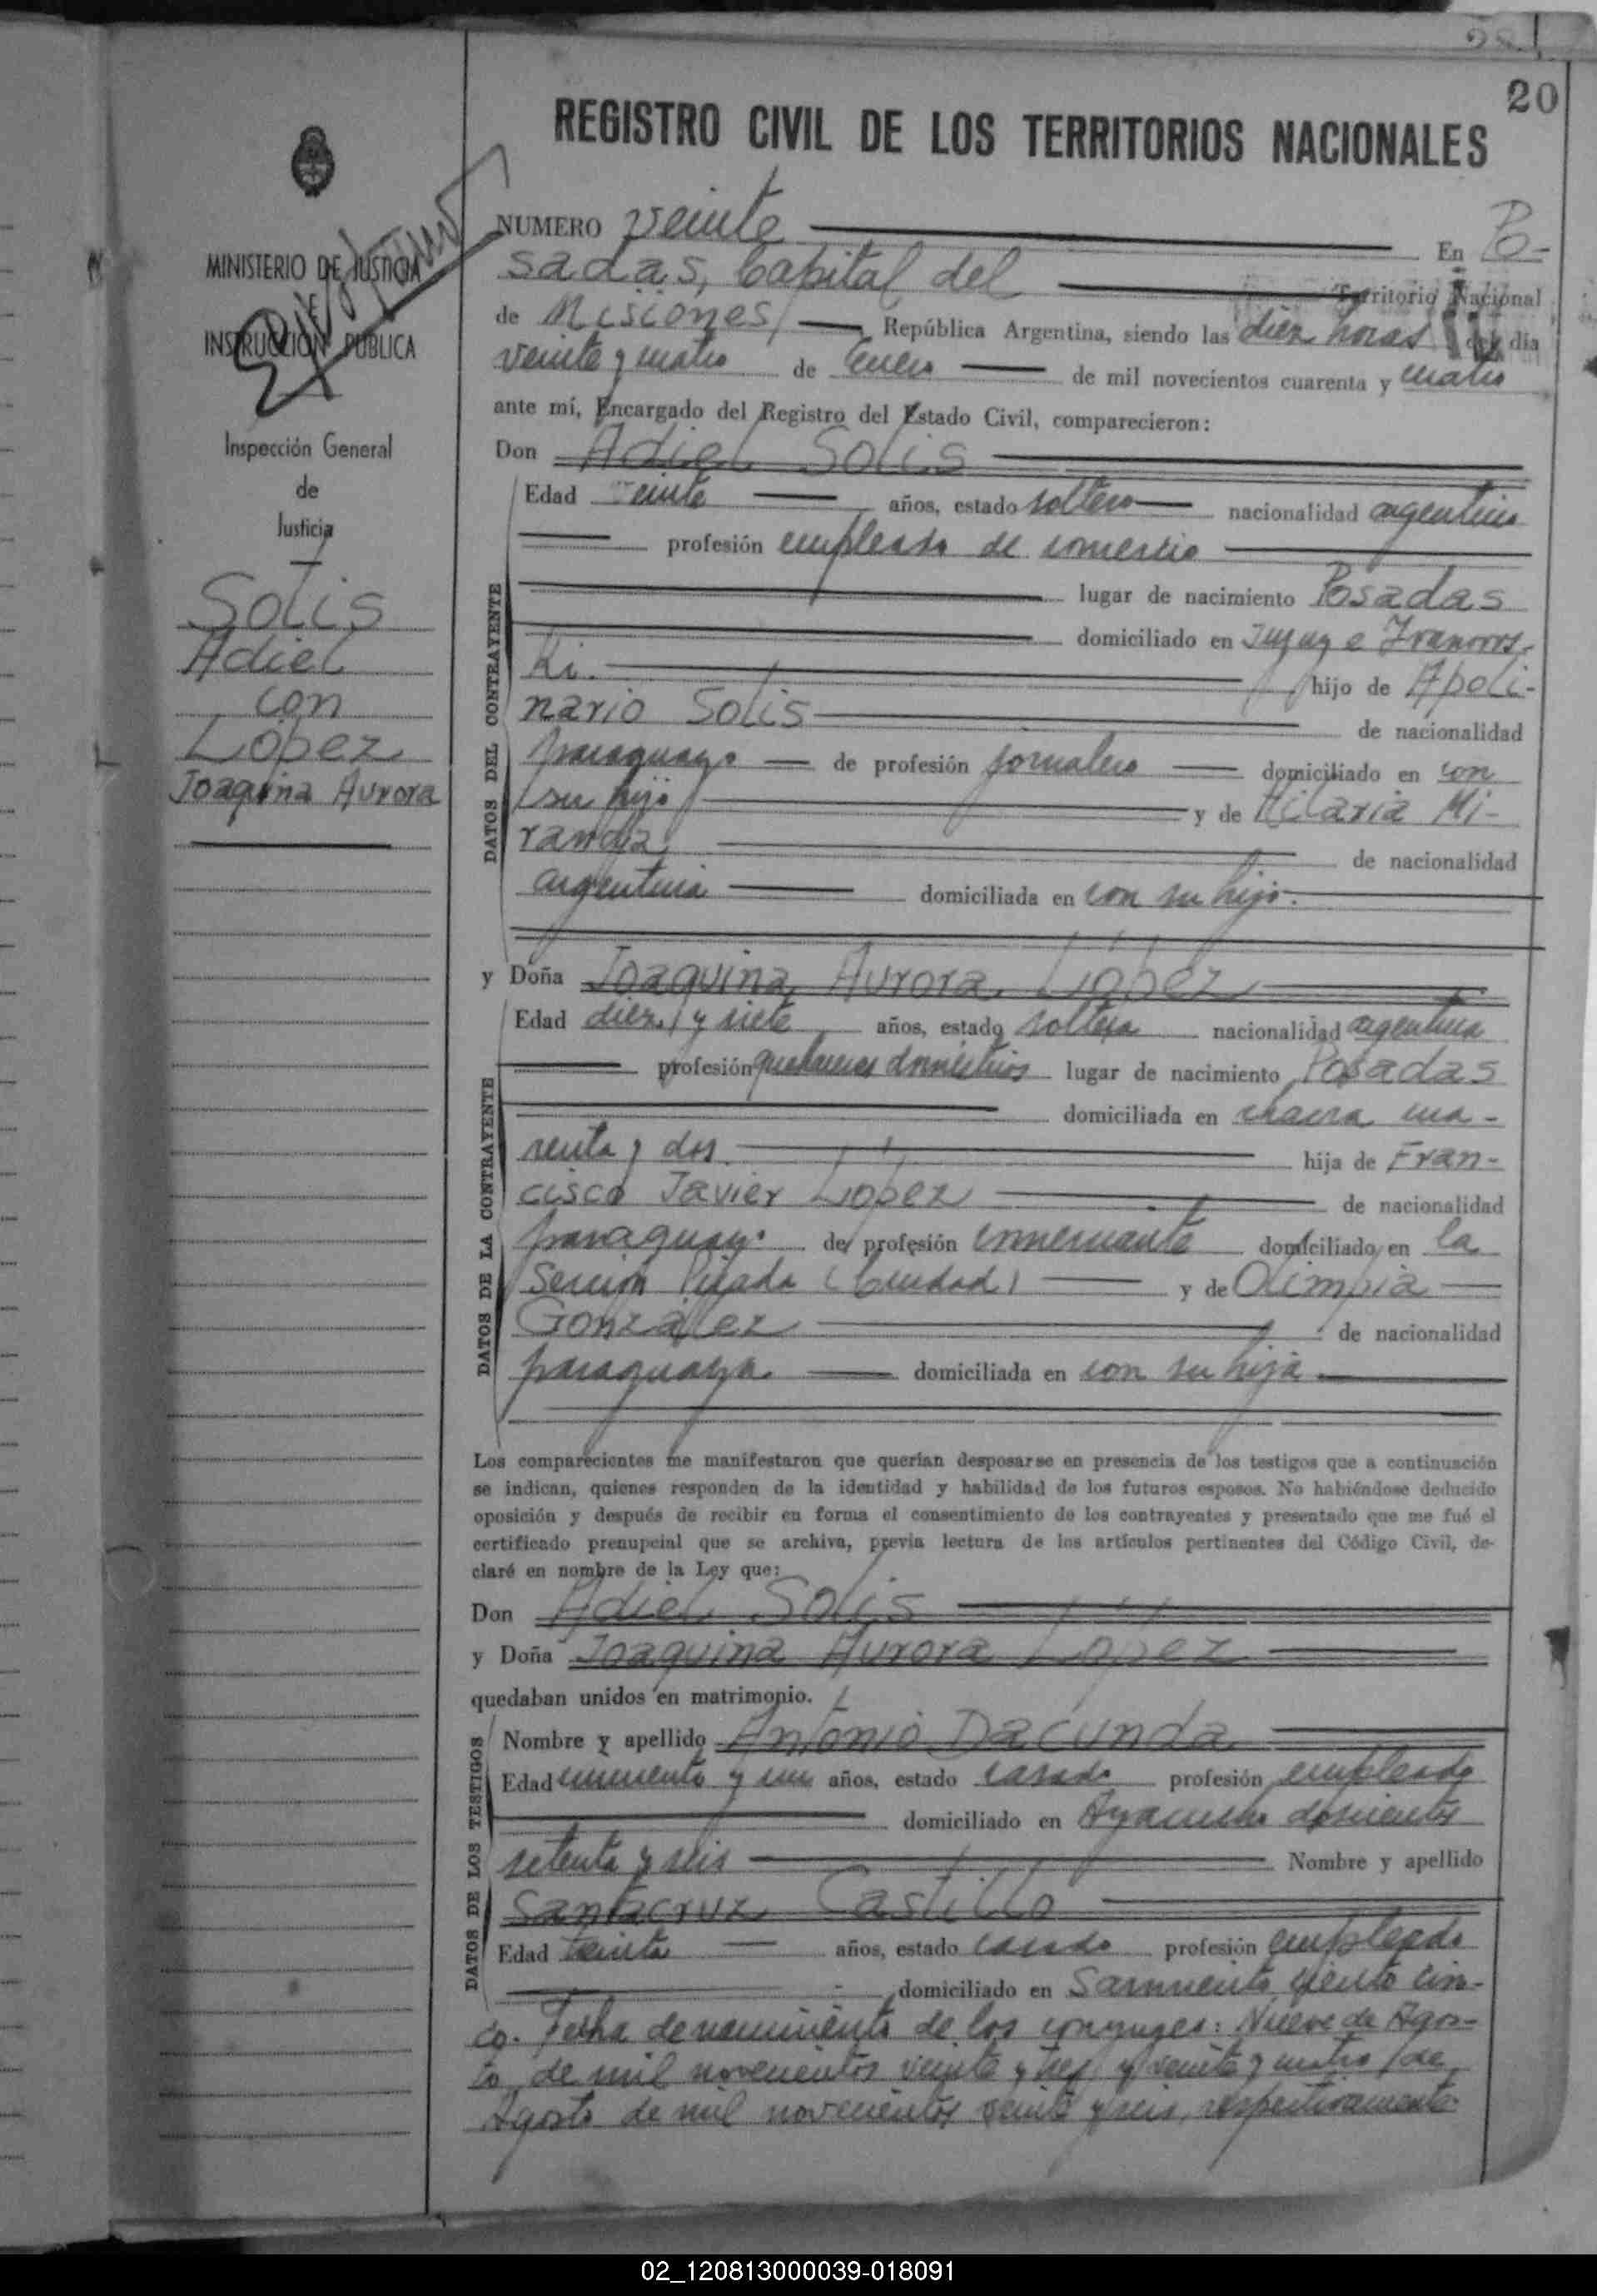 20
REGISTRO CIVIL DE LOS TERRITORIOS NACIONALES
MINISTERIO DE JUSTICIA
E
INSTRUCCION PUBLICA
Inspección General
de
Justicia
Solis
Adiel
con
López
Joaquina Aurora
NUMERO veinte En Po-
sadas, Capital del Territorio Nacional
de Misiones República Argentina, siendo las diez horas del día
veinte y cuatro de Enero de mil novecientos cuarenta y cuatro
ante mí, Encargado del Registro del Estado Civil, comparecieron:
Don Adiel Solis
DATOS DEL CONTRAYENTE
Edad veinte años, estado soltero nacionalidad argentino
profesión empleado de comercio
lugar de nacimiento Posadas
domiciliado en Jujuy e
ki. hijo de Apoli-
nario Solis de nacionalidad
paraguayo de profesión jornalero domiciliado en con
su hijo y de Hilaria Mi-
randa de nacionalidad
argentina domiciliada en con su hijo.
y Doña Joaquina Aurora López
DATOS DE LA CONTRAYENTE
Edad diez y siete años, estado soltera nacionalidad argentina
profesión quehaceres domésticos lugar de nacimiento Posadas
domiciliada en chacra cua-
renta y dos hija de Fran-
cisco Javier López de nacionalidad
paraguayo de profesión comerciante domiciliado en la
Sección Picada (Ciudad) y de Olimpia
González de nacionalidad
paraguaya domiciliada en con su hija
Los comparecientes me manifestaron que querían desposarse en presencia de los testigos que a continuación
se indican, quienes responden de la identidad y habilidad de los futuros esposos. No habiéndose deducido
oposición y después de recibir en forma el consentimiento de los contrayentes y presentado que me fué el
certificado prenupcial que se archiva, previa lectura de los artículos pertinentes del Código Civil, de-
claré en nombre de la Ley que:
Don Adiel Solis
y Doña Joaquina Aurora López
quedaban unidos en matrimonio.
DATOS DE LOS TESTIGOS
Nombre y apellido Antonio Dacunda
Edad cincuenta y un años, estado casado profesión empleado
domiciliado en Ayacucho doscientos
setenta y seis Nombre y apellido
Santacruz Castillo
Edad treinta años, estado casado profesión empleado
domiciliado en Sarmiento ciento cin-
co. Fecha de nacimiento de los conyuges: Nueve de Agos-
to de mil novecientos veinte y tres y veinte y cuatro de
Agosto de mil novecientos veinte y seis, respectivamente.
02_120813000039-018091